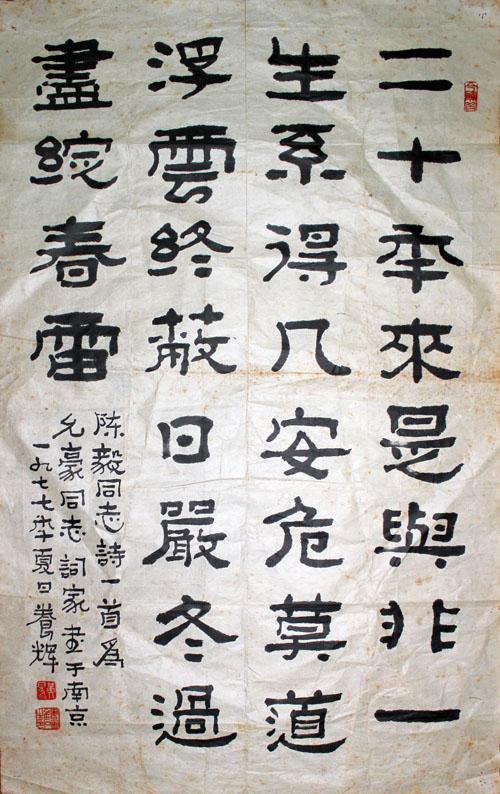 二十年來是與非一
生系得几安危莫道
浮雲終蔽日嚴冬過
盡綻春雷
陈毅同志詩一首為
允豪同志詞家書于南京
一九七七年夏日養辉